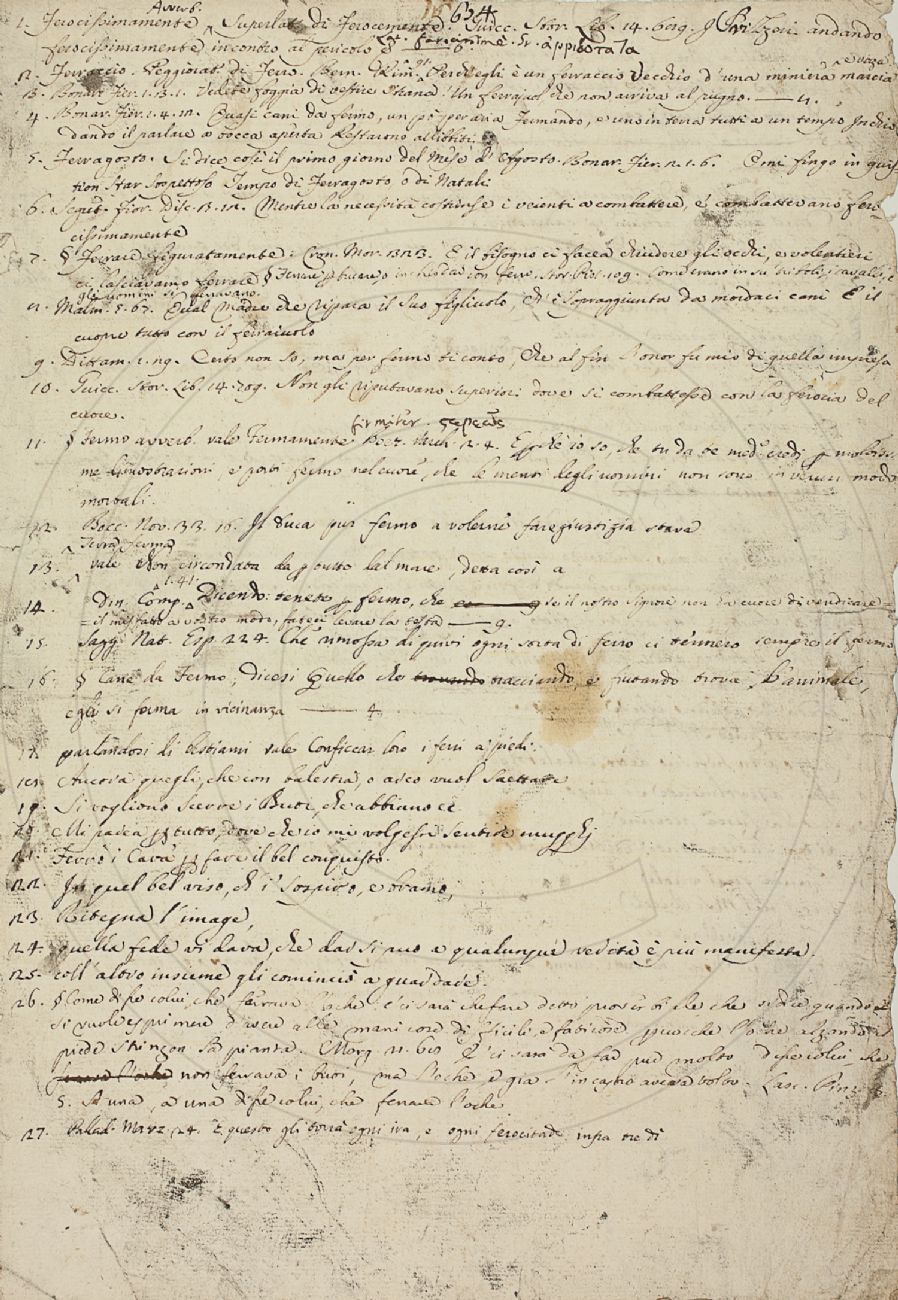 634.
1. Ferocissimamente Avverb. Superlat. di Ferocemente. Guicc. Stor. Lib. 14. 609. Gli Svizzeri andando
ferocissimamente incontro ai pericolo
2. Ferraccio. Peggiorat. di Ferro. Bern. Rim. Perch'egli è un ferraccio vecchio d'una miniera marcia
3. Bonar. Fier. 1. 3. 1. Vedete foggia di vestire strana! Un ferraiuol che non arriva al pugno. — 4.
4. Bonar. Fier. 1. 4. Quasi cani da fermo, un po' per aria Fermando, e uno in terra tutti a un tempo
dando il parlare a bocca aperta Restarono allibbiti.
5. Ferragosto. Si dice così il primo giorno del Mese d'Agosto. Bonar. Fier. 1. 6. E mi fingo in quis-
tion star sospettoso Tempo di Ferragosto o di Natali
6. Segr. Fior. Disc. Mentre la necessità costrinse i veienti a combattere, e' combatterano fero-
cissimamente
7. § Ferrare figuratamente. Cron. Mor. E il bisogno ci facea chiudere gli occhi, e volentieri
ci lasciavamo ferrare
gli uomini si ferravano.
Malm. 5. 67. Qual Madre che ripara il suo figliuolo, Ch'è sopraggiunta da mordaci cani E il
cuopre tutto con il ferraiuolo
9. Dittam. Certo non so, ma per fermo ti conto, che al fin l'onor fu mio di quella impresa
10. Guicc. Stor. Lib. 14. 709. Non gli riputavano superiori dove si combattesse con la ferocia del
cuore.
11. § Fermo avverb. vale Fermamente
me dimostrazioni, e porti fermo nel cuore, che le menti degli uomini non sono in veruno modo
mortali.
12. Bocc. Nov. 33. 16. Il Duca pur fermo a volerne fare giustizia stava
Terra ferma
13. vale Non circondata da per tutto dal mare, detta così a
14. Din. Comp. 1. 41. Dicendo: tenete per fermo, che se il nostro Signore non ha cuore di vendicare
il misfatto a vostro modo, fateci levare la testa — 9.
15. Sagg. Nat. Esp. 224. Che rimossa di quivi ogni sorta di ferro ci tennero sempre il fermo
16. § Cane da Fermo, dicesi Quello che tracciando, e fiutando trova l'animale,
egli si ferma in vicinanza — 4.
17. parlandosi di bestiami vale Conficcar loro i ferri a' piedi.
18. Ancora quegli, che con balestra, o arco vuol Saettare
19. Si vogliono scerre i Buoi, che abbiano ec.
20. Mi parea per tutto, dove che io mi volgessi sentire mugghj
21. Ferrò i Cava per fare il bel conquisto.
22. In quel bel viso, ch'i' sospiro, e bramo,
23. Ritegna l'image,
24. quella fede vi dava, che dar si può a qualunque verità è più manifesta.
25. coll'altro insieme gli cominciò a guardare.
26. § Come disse colui, che ferrava l'oche e' ci sarà che fare detto proverbiale che si dice quando
si vuole esprimere d'avere alle mani cose difficili, e faticose
piede stringon la pianta. Morg. E' ci sarà da far pur molto Disse colui che
non ferrava i buoi, ma l'oche e già l'incastro aveva tolto. Lasc.
5. A una, a una disse colui, che ferrava l'oche
27. Pallad. Marz. 24. E questo gli torrà ogni ira, e ogni ferocitade infra tre dì